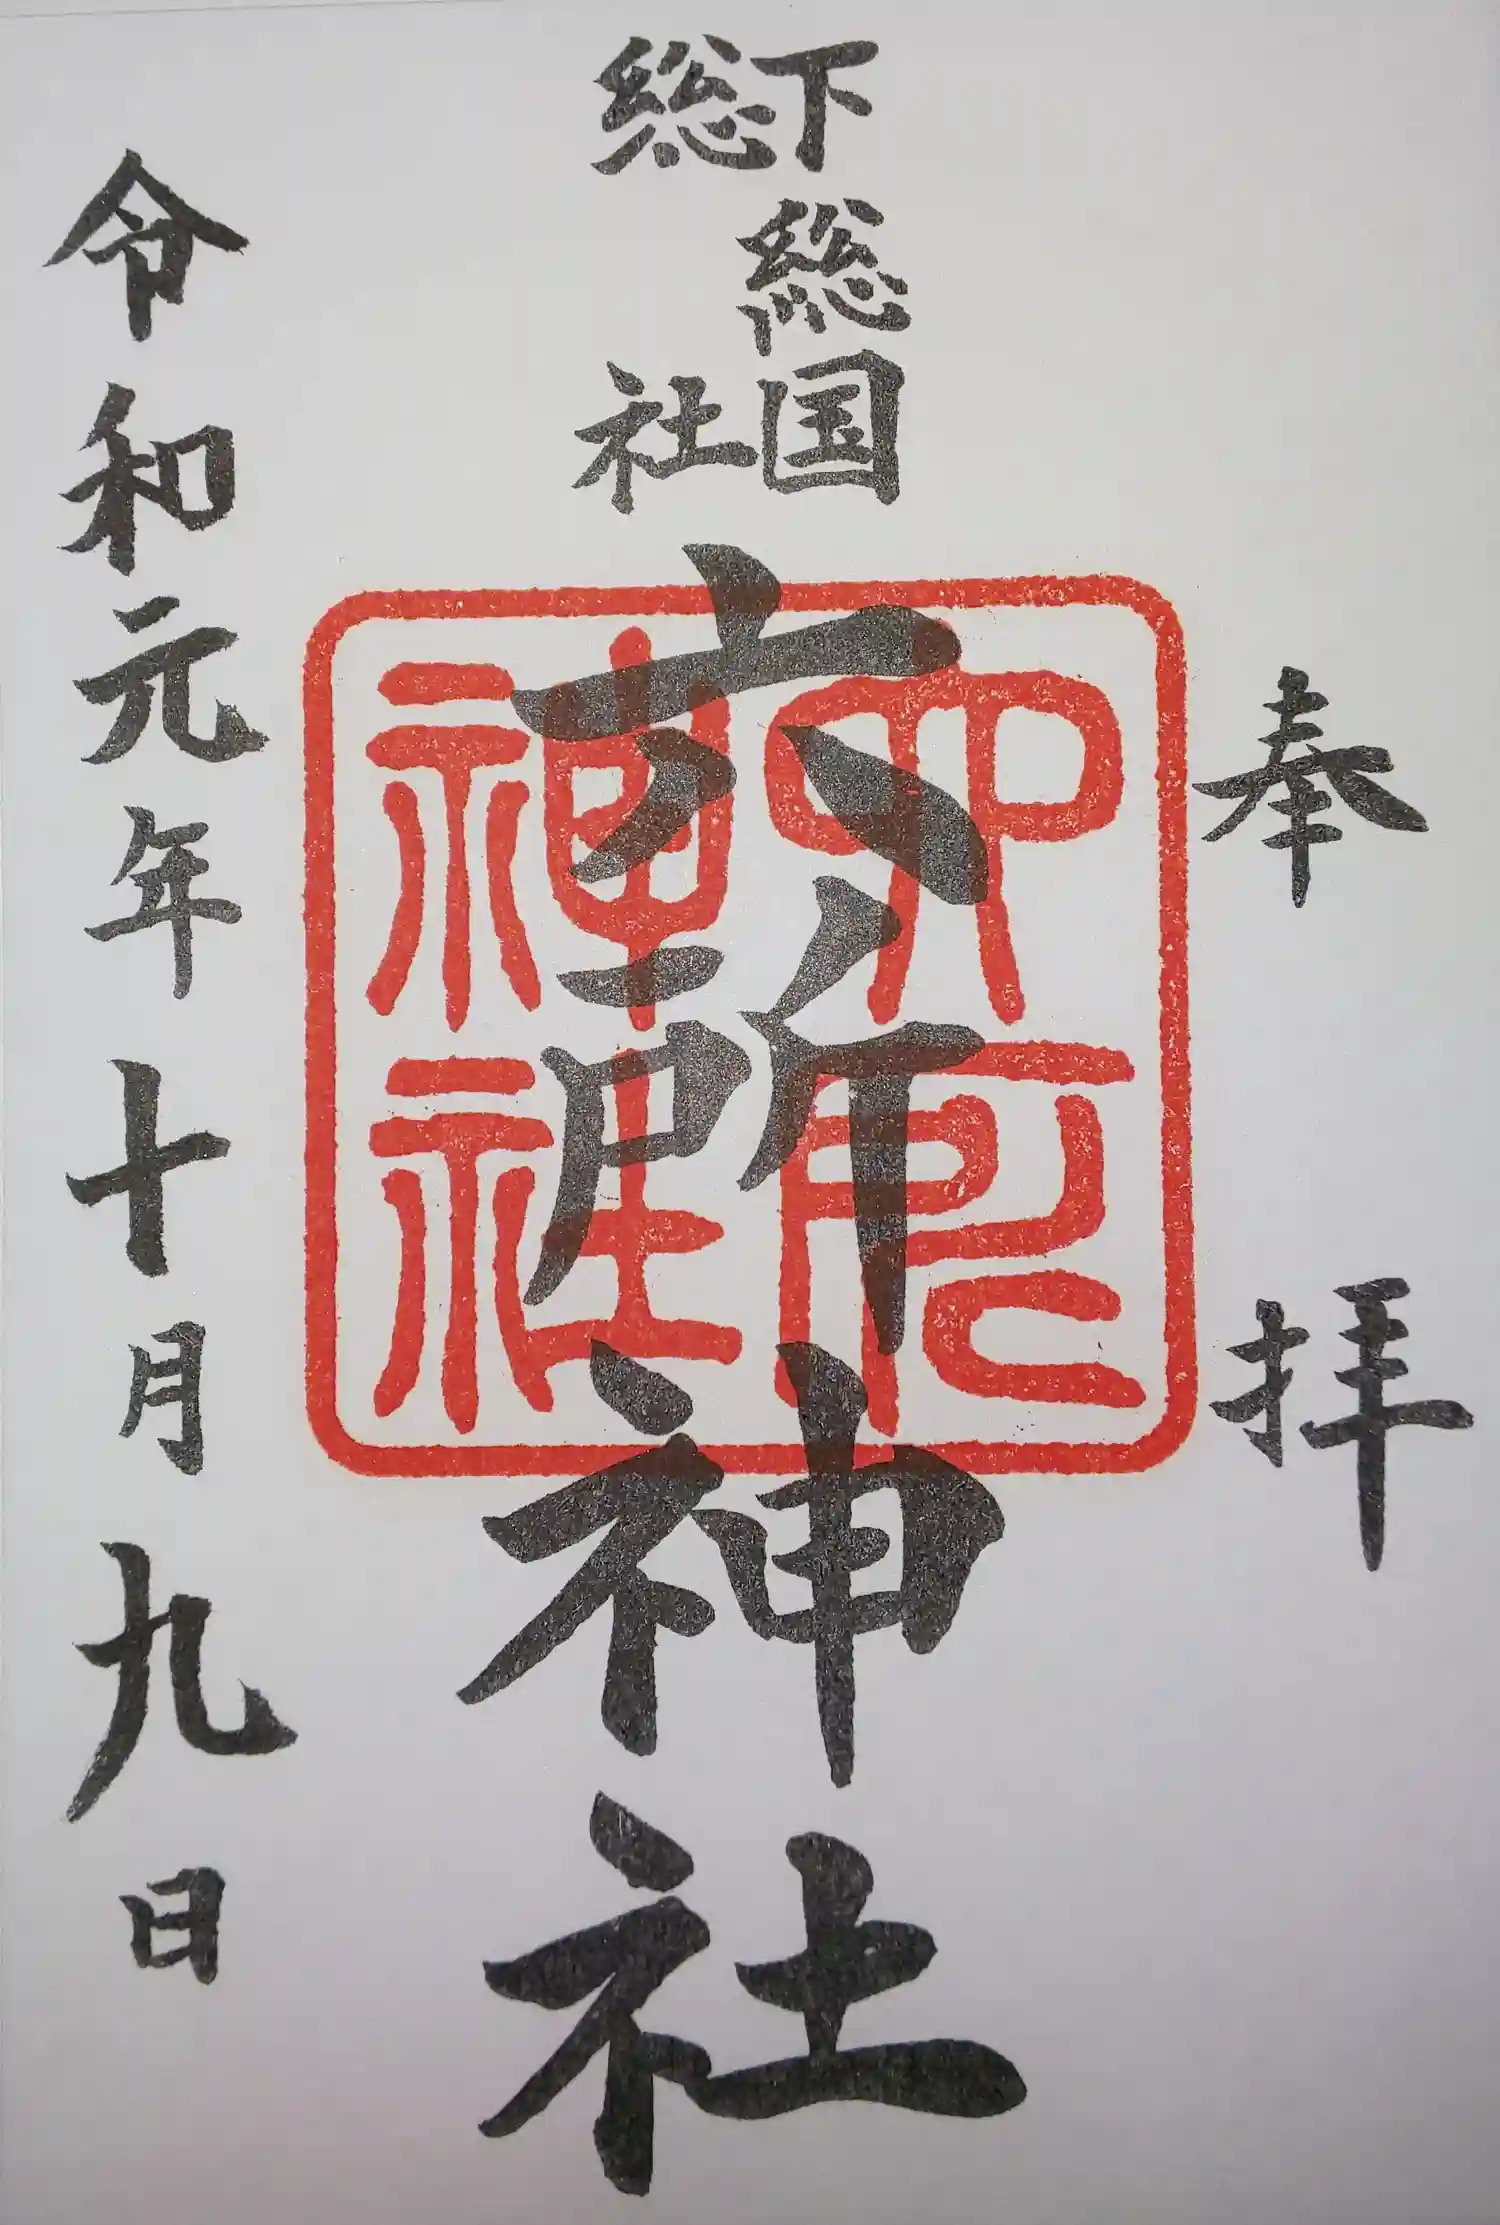 奉拝
下総国
総社
六所神社
六所神社
令和元年十月九日